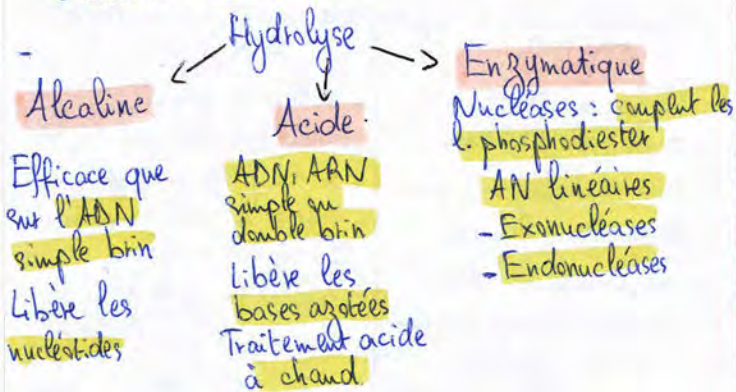 Hydrolyse
-
Alcaline
Efficace que
sur l'ADN
simple brin
Libère les
nucléotides
Acide.
ADN, ARN
simple ou
double brin
Libère les
bases azotées
Traitement acide
à chaud
Enzymatique
Nucléases : coupent les
l. phosphodiester
AN linéaires
- Exonucléases
- Endonucléases